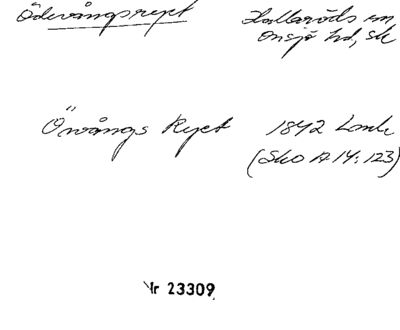 Ödevångsryet Hallaröds sn,
Onsjö hd, Sk
Övångs Ryet 1842 Lantm
(Sko A 14:123)
Nr 23309